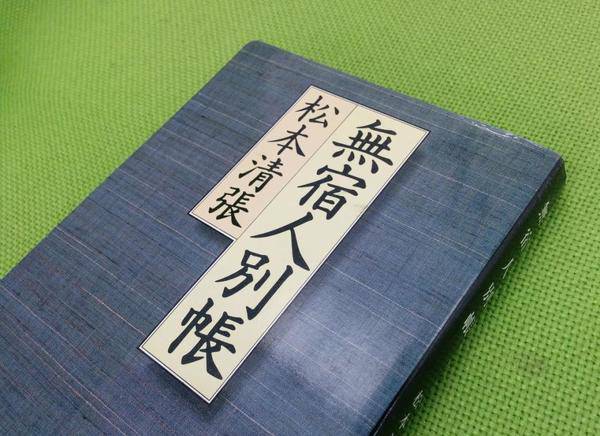 無宿人別帳
松本清張